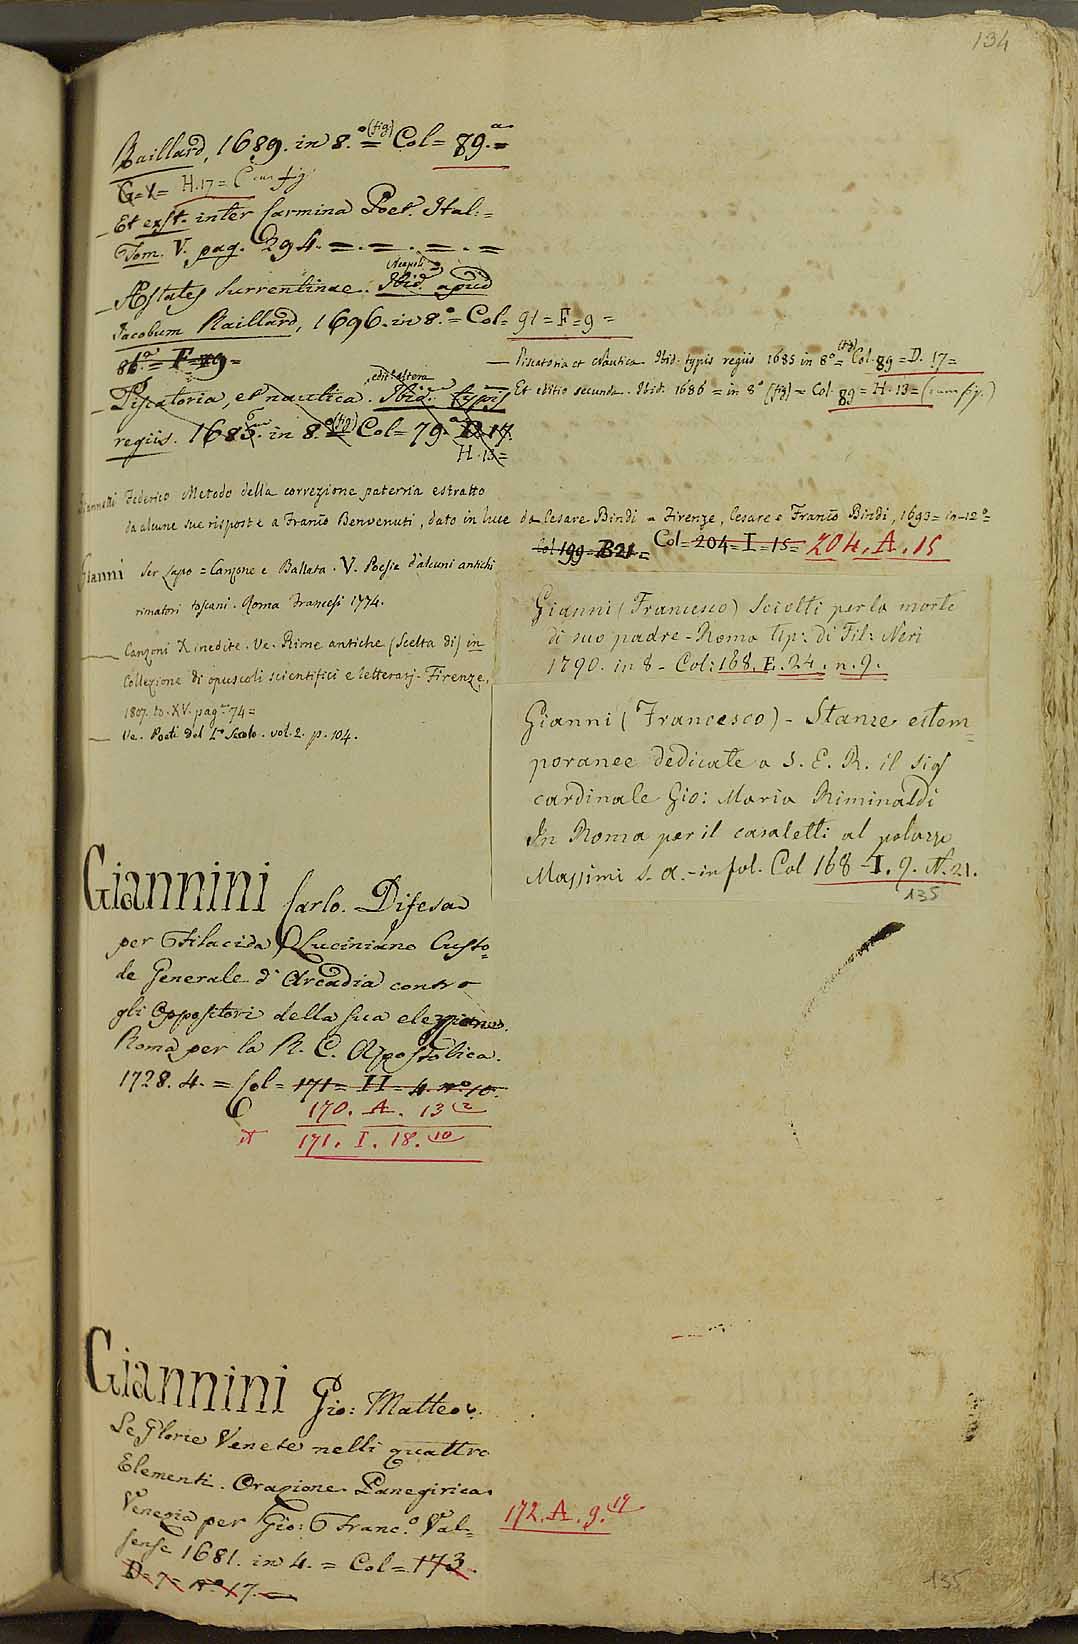 134
Raillard, 1689. in 8.° (fig) = Col= 89.=
G=X= H.17= Cum fig
Et exst. inter Carmina Poet. Ital:=
Tom. V. pag. 294. = . = . = . =
Æstates Surrentinae. Ibid. apud
Neapoli
Jacobum Raillard, 1696. in 8.° = Col= 91 = F = 9 =
86.= F=29=
Piscatoria, et nautica. Ibid. typis
edit. altera
regiis. 1685. in 8.° (fig) = Col= 79. D.17.
H.13=
— Piscatoria et Nautica. Ibid. typis regiis 1685 in 8° (fig) = Col. 89 = D. 17 =
Et editio secunda. Ibid. 1686 = in 8° (fig) = Col. 89 = H. 13 = (cum fig.)
Giannetti Federico Metodo della correzione paterna estratto
da alcune sue risposte a Franco Benvenuti, dato in luce da Cesare Bindi = Firenze, Cesare e Franco Bindi, 1693 = in-12° =
Col 199 = B21 = Col= 204 = I = 15 = 204. A. 15
Gianni Ser Lapo = Canzone e Ballata. V. Poesie d'alcuni antichi
rimatori toscani. Roma Francesi 1774.
— Canzoni X inedite. Ve. Rime antiche (Scelta di) in
Collezione di opuscoli scientifici e letterarj. Firenze,
1807. to. XV. pag. 74 =
— Ve. Poeti del 1° Secolo. vol. 2. p. 104.
Gianni (Francesco) Sciolti per la morte
di suo padre - Roma tip: di Fil: Neri
1790. in 8 - Col: 168. E. 24. n. 9.
Gianni (Francesco) - Stanze estem=
poranee dedicate a S. E. R. il sig
cardinale Gio: Maria Riminaldi
In Roma per il casaletti al palazzo
Massimi s. a. - in fol. Col 168 - I. 9. N. 21.
135
Giannini Carlo. Difesa
per Filacida Luciniano Custo=
de Generale d'Arcadia contro
gli Oppositori della sua elezzione.
Roma per la R. C. Apostolica.
1728. 4. = Col= 171 = H = 4. n° 10.
170. A. 13 2
171. I. 18. 10
Giannini Gio: Matteo.
Le Glorie Venete nelli quattro
Elementi. Orazione Panegirica.
Venezia per Gio: Franc.° Val=
sense 1681. in 4. = Col= 173.
D= 7= n° 17. =
172. A. 9. 17
135